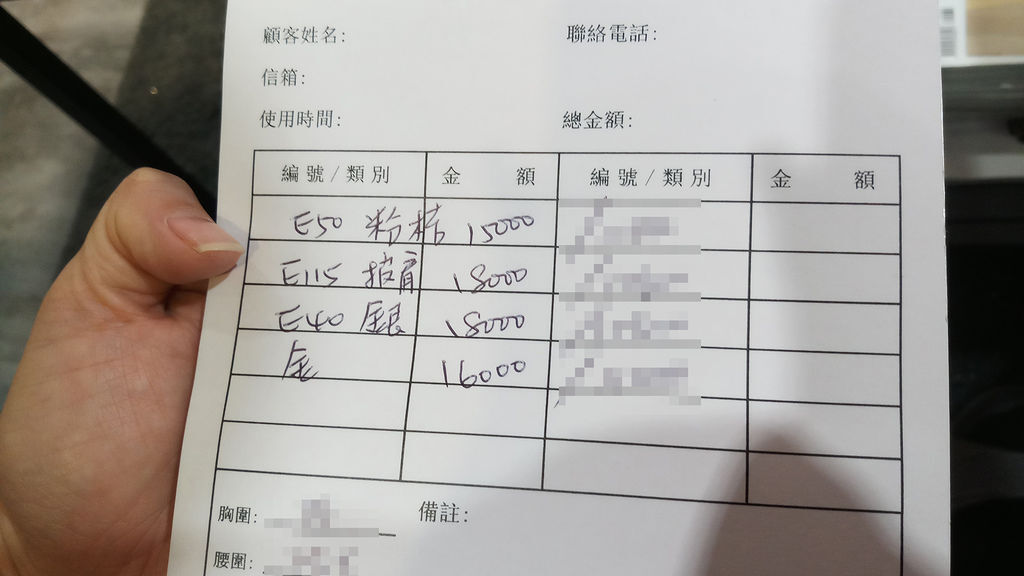 顧客姓名: 聯絡電話:
信箱:
使用時間: 總金額:
編號/類別 金額 編號/類別 金額
E50 粉桔 15000
E115 披肩 18000
E40 銀 18000
金 16000
胸圍: 備註:
腰圍: